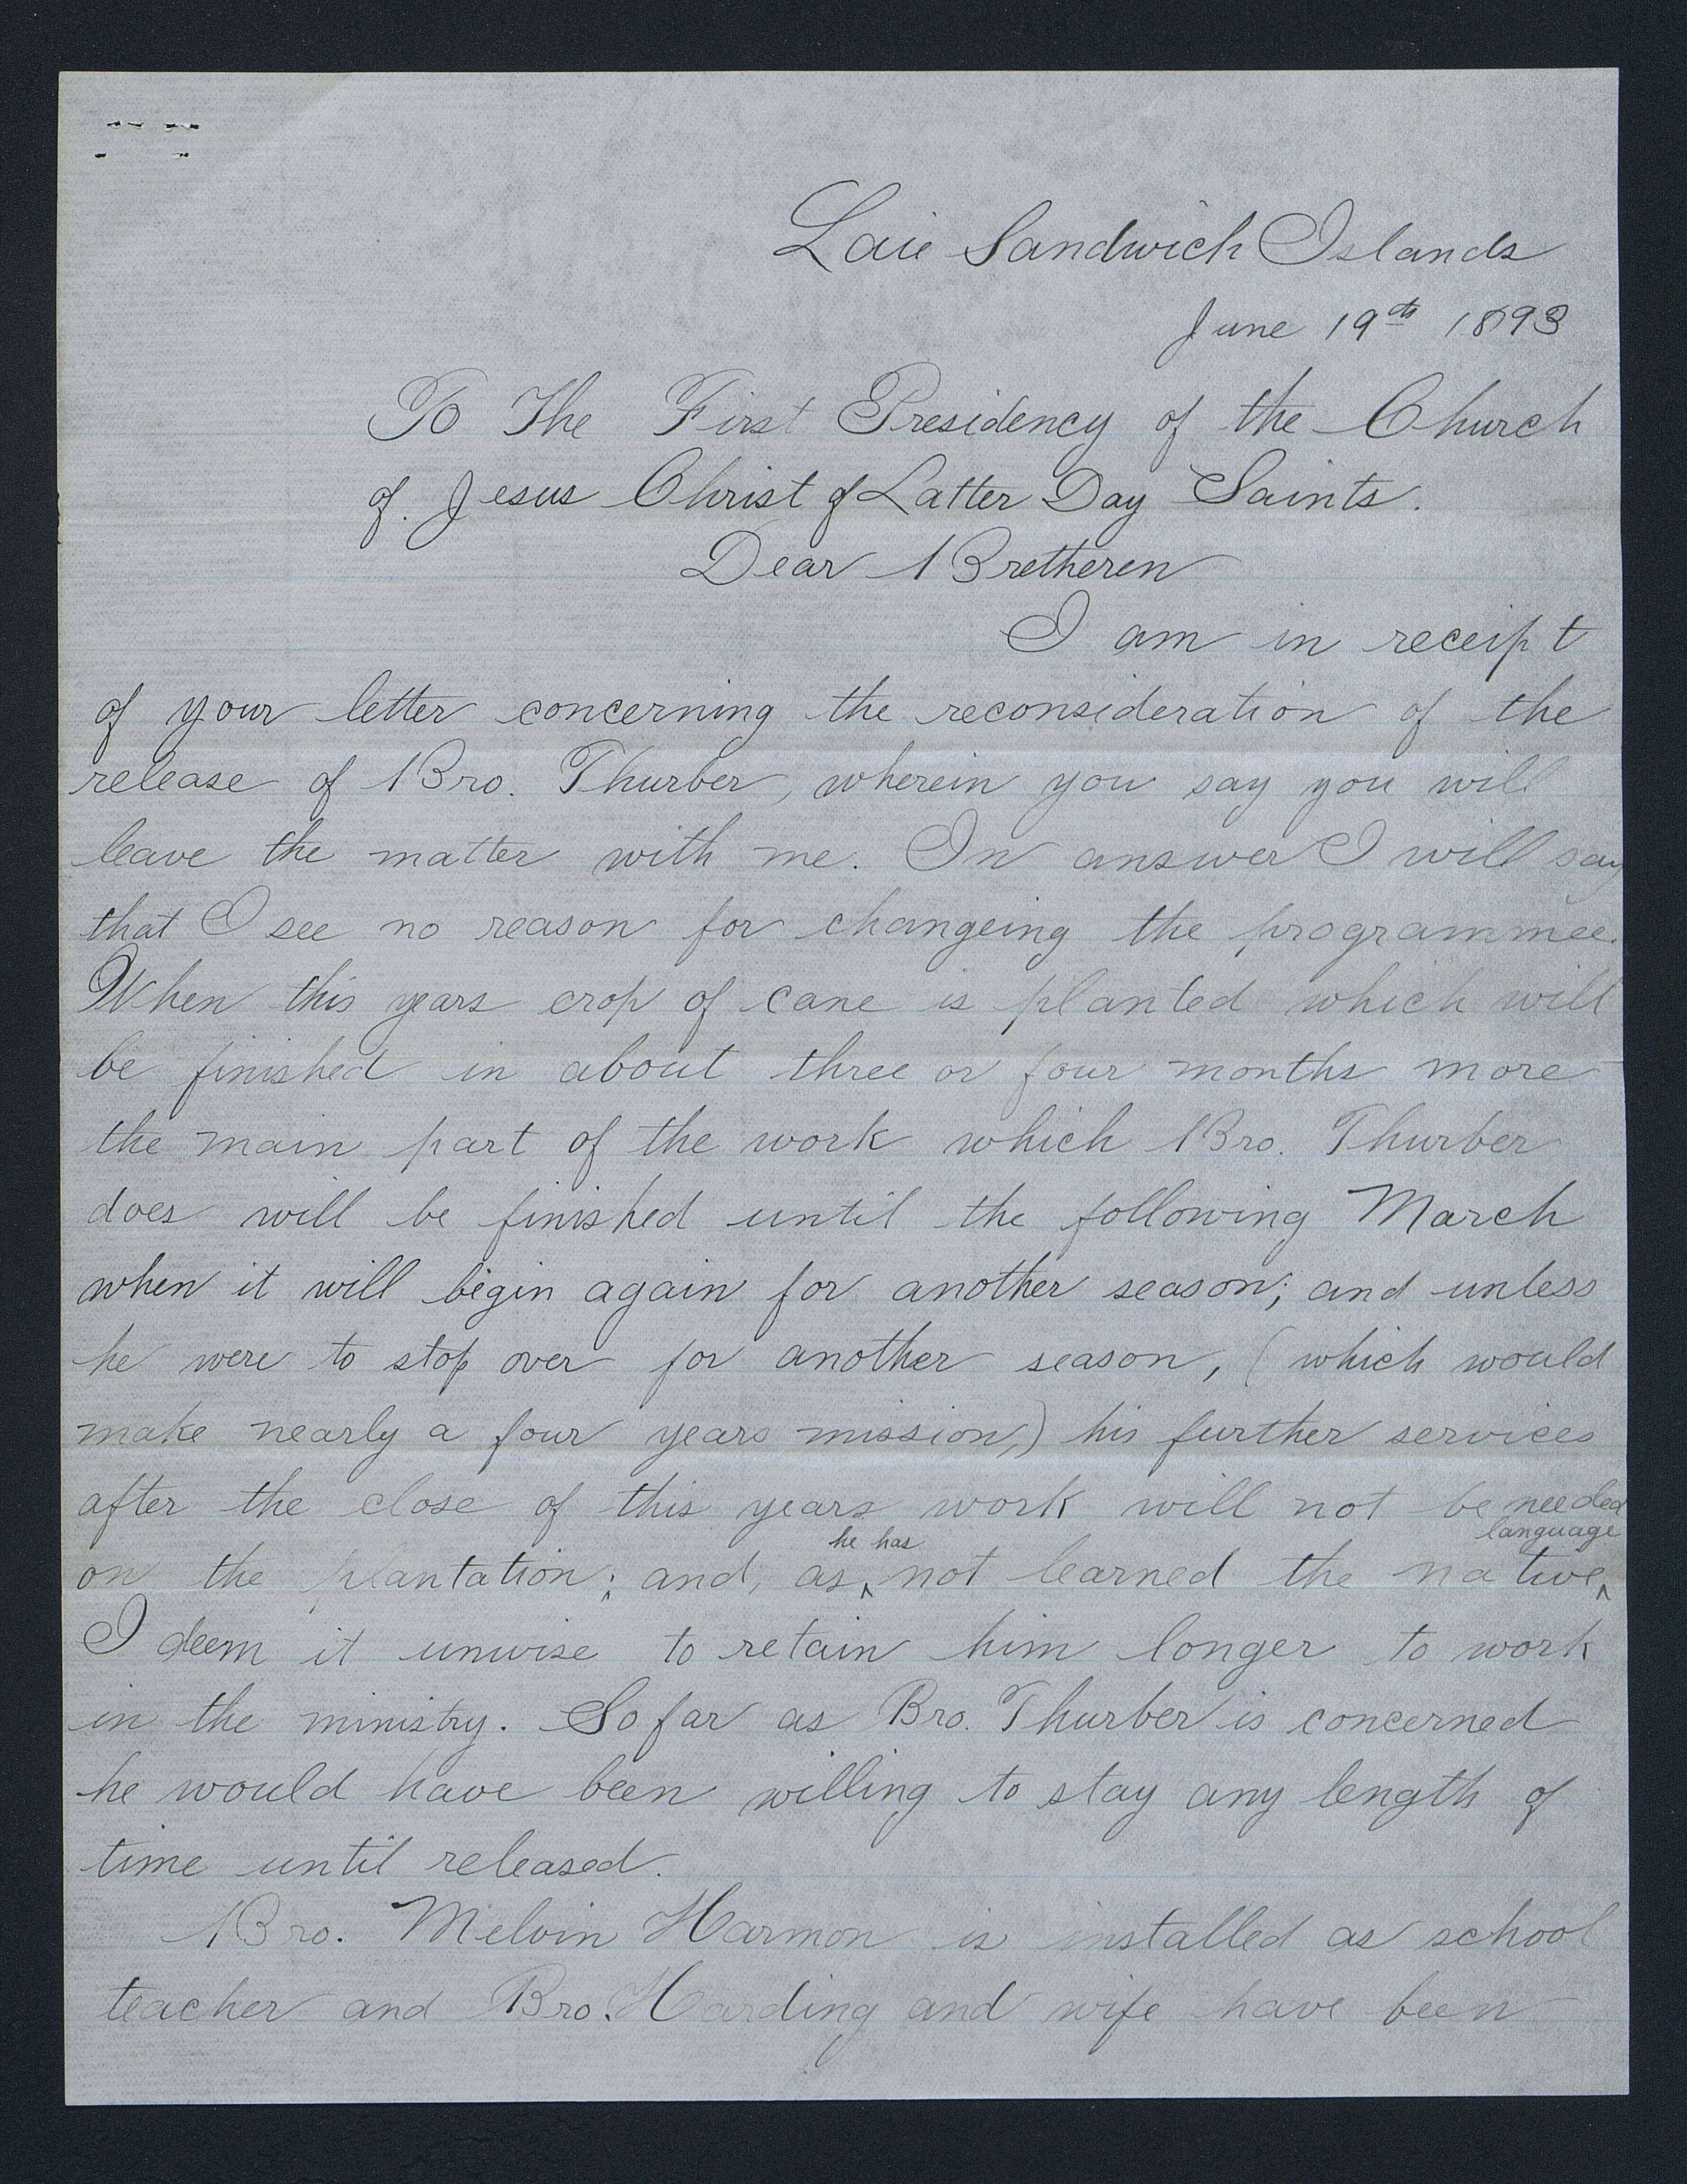 Laie Sandwich Islands
June 19th 1893
To The First Presidency of the Church
of. Jesus Christ of Latter Day Saints.
Dear Bretheren
I am in receipt
of your letter concerning the reconsideration of the
release of Bro. Thurber, wherein you say you will
leave the matter with me. In answer I will say
that I see no reason for changeing the programmee.
When this years crop of cane is planted which will
be finished in about three or four months more
the main part of the work which Bro. Thurber
does will be finished until the following March
when it will begin again for another season; and unless
he were to stop over for another season, (which would
make nearly a four years mission,) his further services
after the close of this years work will not be needed
on the plantation; and, as he has not learned the native language
I deem it unwise to retain him longer to work
in the ministry. So far as Bro. Thurber is concerned
he would have been willing to stay any length of
time until released.
Bro. Melvin Harmon is installed as school
teacher and Bro. Harding and wife have been